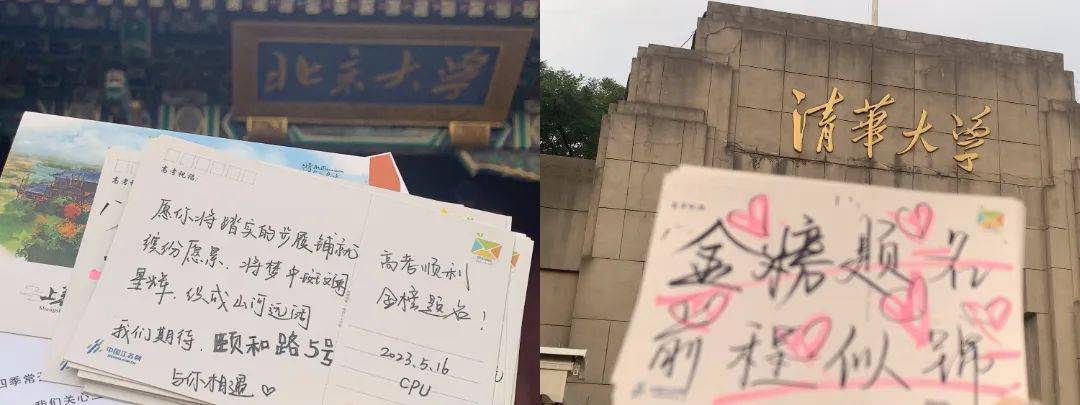 北京大学
高考祝福:
愿你将踏实的步履铺就
缤纷愿景,将梦中
星辉,
山河远阔
我们期待,颐和路5号
与你相遇♡
高考顺利
金榜题名!
2023.5.16
CPU
中国江苏网
四季常
我们关心
清華大学
金榜题名
前程似锦